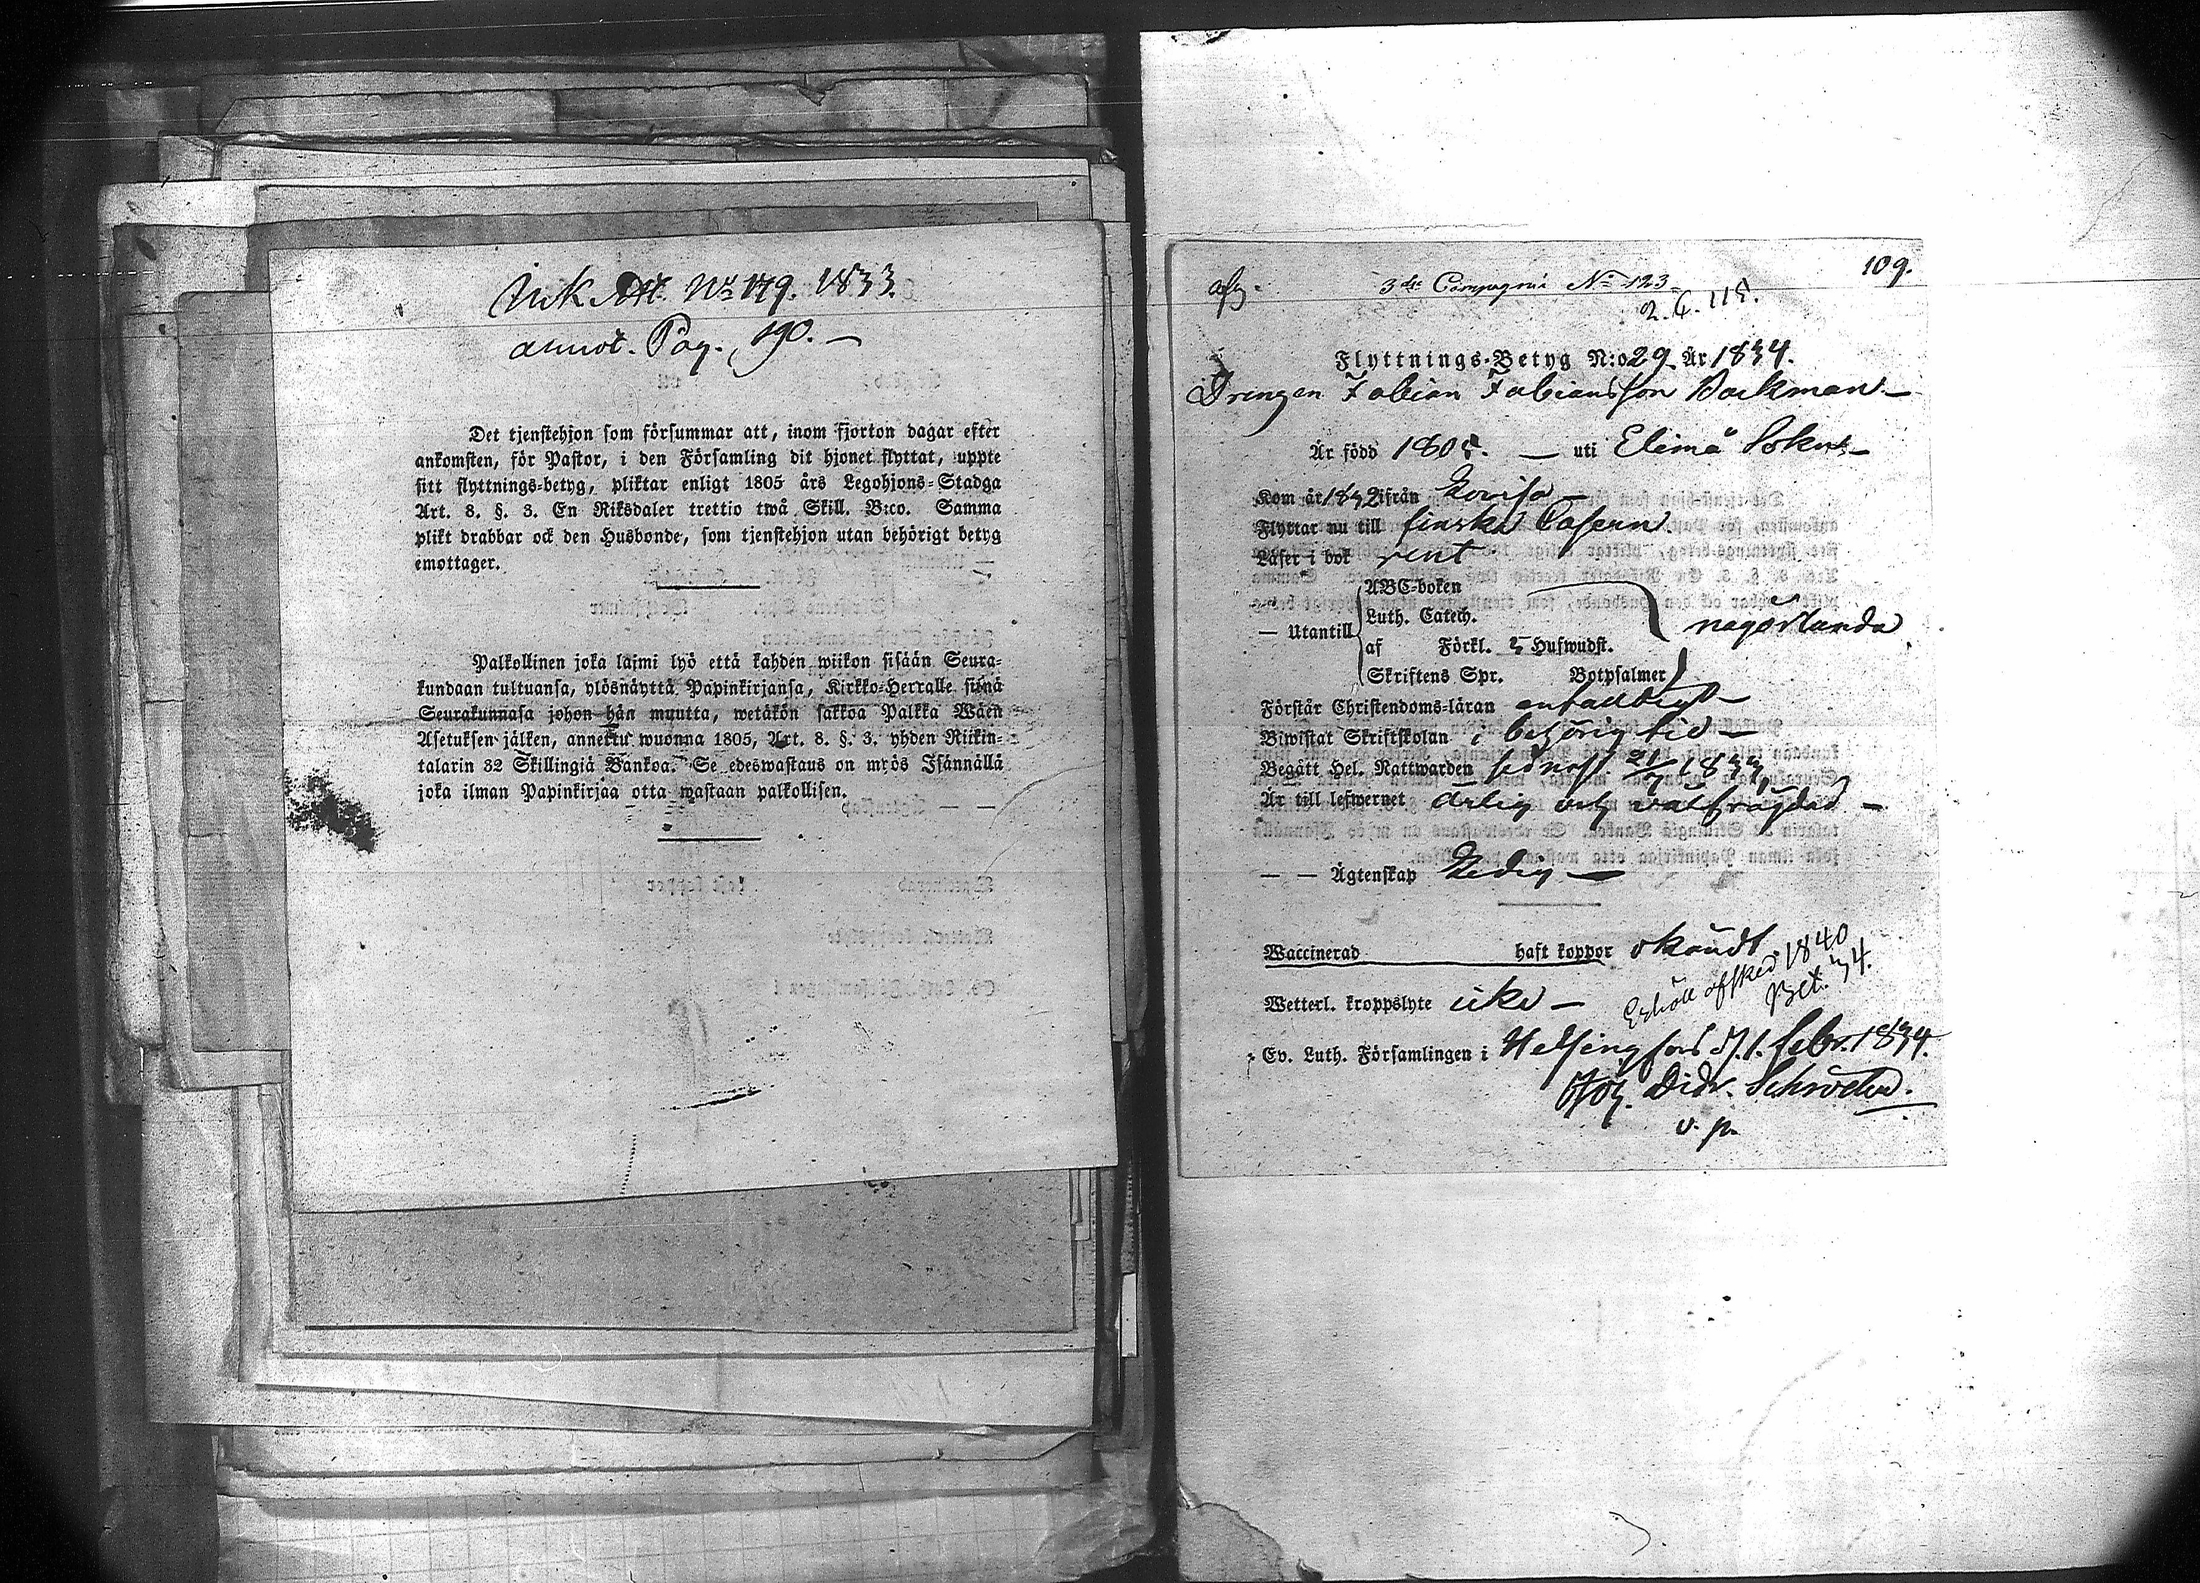 Ink Att. No 179. 1833.
annot. Pag. 190. —
Det tjenstehjon som försummar att, inom fjorton dagar efter
ankomsten, för Pastor, i den Församling dit hjonet flyttat, uppte
sitt flyttnings-betyg, pliktar enligt 1805 års Legohjons-Stadga
Art. 8. §. 3. En Riksdaler trettio twå Skill. B:co. Samma
plikt drabbar ock den Husbonde, som tjenstehjon utan behörigt betyg
emottager.
Palkollinen joka laimi lyö että kahden wiikon sisään Seura-
kundaan tultuansa, ylösnäyttä Papinkirjansa, Kirkko-Herralle siinä
Seurakunnasa johon hän muutta, wetäkön sakkoa Palkka Wäen
Asetuksen jälken, annettu wuonna 1805, Art. 8. §. 3. yhden Riikin-
talarin 32 Skillingiä Bankoa. Se edeswastaus on myös Isännällä
joka ilman Papinkirjaa otta wastaan palkollisen.
109.
afg. 3die Compagnie No 123
2. C. 115.
Flyttnings-Betyg N:o 29 År 1834.
Drengen Fabian Fabiansson Backman —
Är född 1805. — uti Elimä Sokn —
Kom år 1832 ifrån Lovisa —
Flyttar nu till finska Casern
Läser i bok rent
ABC-boken
Luth. Catech.
— Utantill någorlunda
af Förkl. 5 Hufwudst.
Skriftens Spr. Botpsalmer
Förstår Christendoms-läran enfaldigt —
Biwistat Skriftskolan i behörig tid —
Begått Hel. Nattwarden sednast 21/7 1833
Är till lefwernet ärlig och välfrägdad —
— — Ägtenskap Ledig —
Waccinerad haft koppor okändt.
Erhöll afsked 1840
Bet. 34.
Wetterl. kroppslyte icke —
Ev. Luth. Församlingen i Helsingfors d. 1. febr. 1834.
Joh. Didr. Schroeder.
v. p.